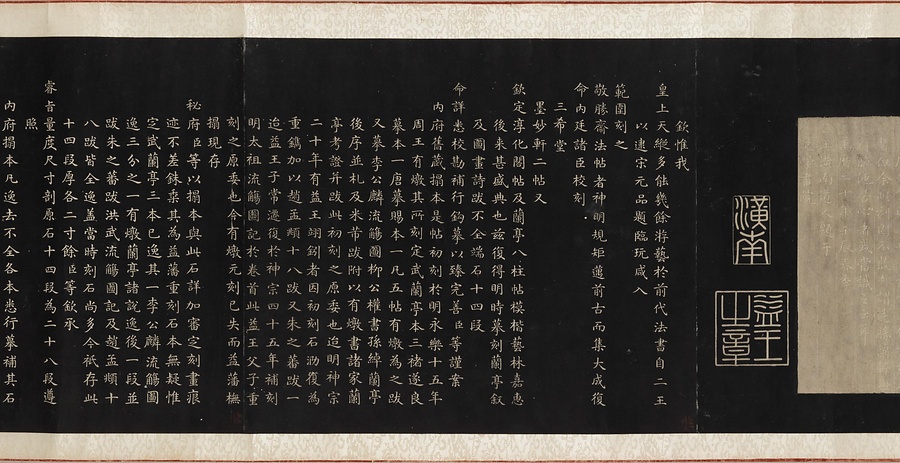 潢南
益王之章
欽惟我
皇上天縱多能幾餘游藝於前代法書自二王
以逮宋元品題臨玩咸入
範圍刻之
敬勝齋法帖者神明規矩邁前古而集大成復
命內廷諸臣校刻
三希堂
墨妙軒二帖又
欽定淳化閣帖及蘭亭八柱帖模楷藝林嘉惠
後來甚盛典也茲復得明時摹刻蘭亭敘
及圖書詩跋不全端石十四段
命詳悉校勘補行鈎摹以臻完善臣等謹案
內府舊蔵搨本是帖初刻於明永樂十五年
周王有燉其所刻定武蘭亭本三褚遂良
摹本一唐摹賜本一凡五帖有燉為之跋
又摹李公麟流觴圖柳公權書孫綽蘭亭
後序並札及米芾跋附以有燉書諸家蘭
亭考證并跋此初刻之原委也迨明神宗
二十年有益王翊鈏者因初刻石泐復為
重鐫加以趙孟頫十八跋又朱之蕃跋一
迨益王子常𣻌復於神宗四十五年補刻
明太祖流觴圖記於卷首此益王父子重
刻之原委也今有燉元刻已失而益藩橅
搨現存
秘府臣等以搨本與此石詳加審定刻畫痕
迹不差銖黍其為益藩重刻石本無疑惟
定武蘭亭三本已逸其一李公麟流觴圖
逸三分之一有燉蘭亭諸說逸後一段並
跋朱之蕃跋洪武流觴圖記及趙孟頫十
八跋皆全逸蓋當時刻石尚多今祇存此
十四段厚各二寸餘臣等欽承
睿旨量度尺寸剖原石十四段為二十八段遵
照
內府搨本凡逸去不全各本悉行摹補其石